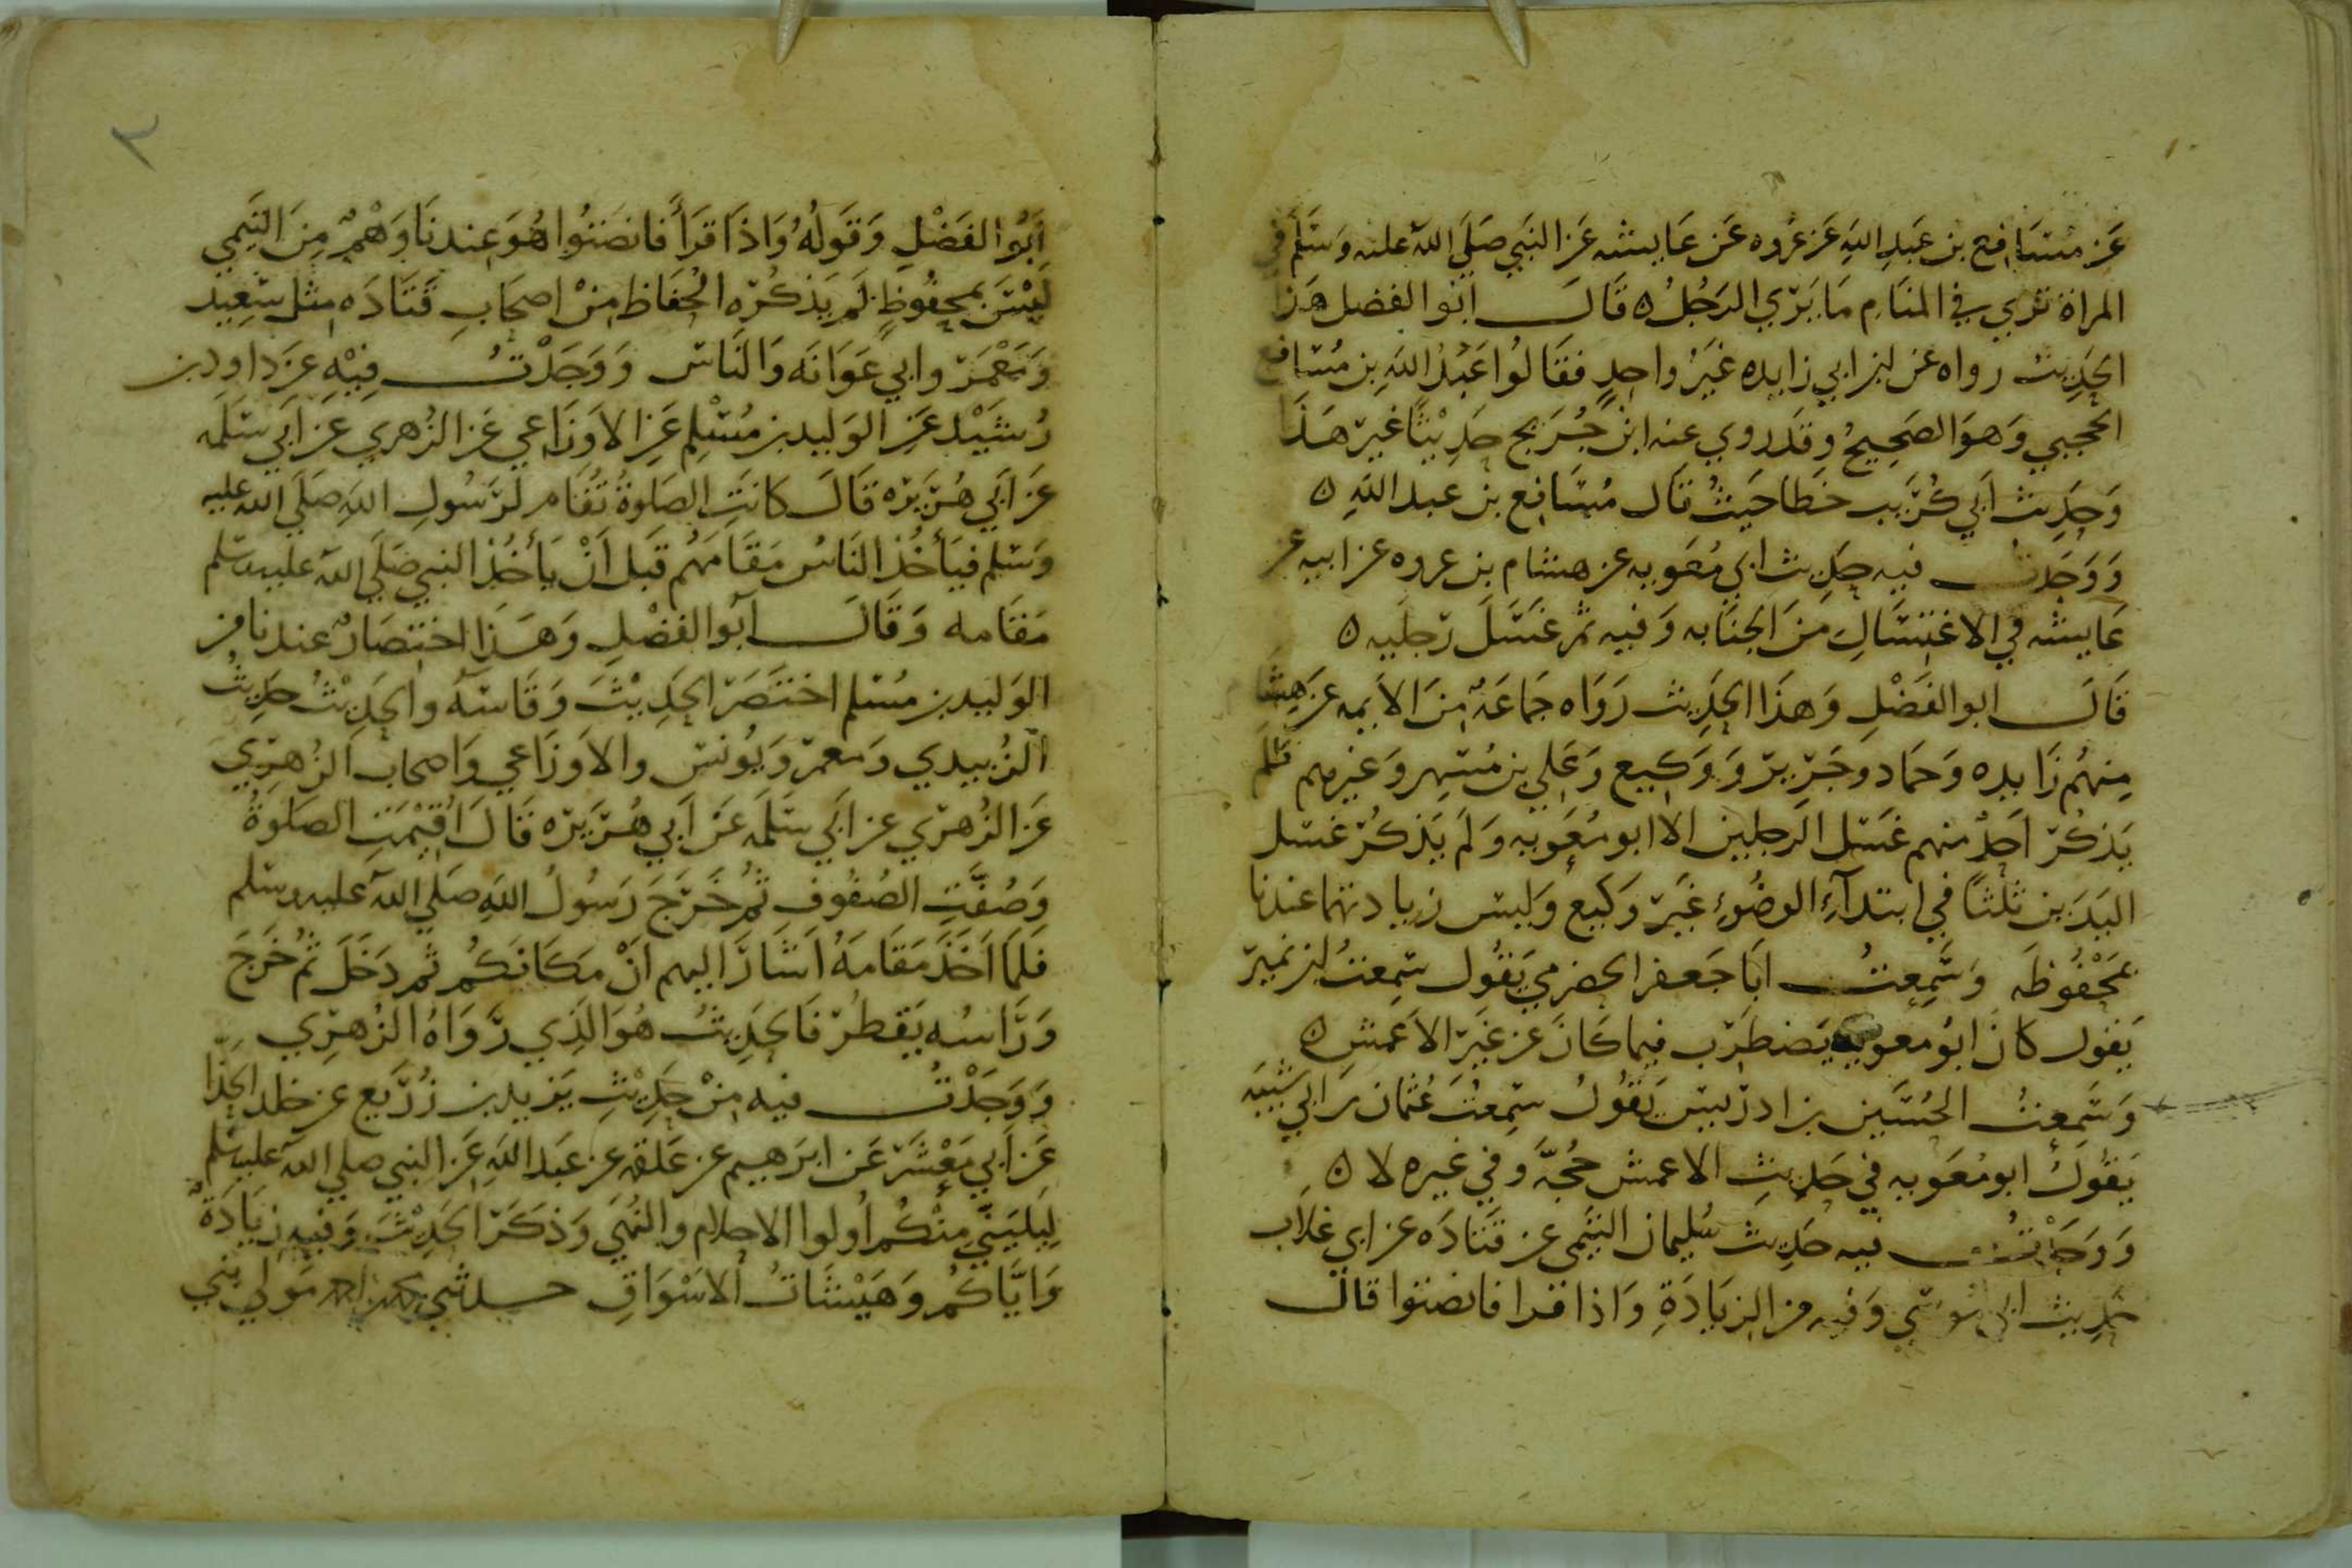 عن مسافع بن عبد الله عن عروه عن عايشه عن النبي صلى الله عليه وسلم في
المراة تري في المنام ما يري الرجل ه قال ابو الفضل هذا
الحديث رواه عن ابن ابي زايده غير واحد فقالوا عبد الله بن مسافع
الحجبي وهو الصحيح وقد روي عنه ابن جريج حديثا غير هذا
وحديث ابي كريب خطا حيث قال مسافع بن عبد الله ه
ووجدت فيه حديث ابي معويه عن هشام بن عروه عن ابيه عن
عايشه في الاغتسال من الجنابه وفيه ثم غسل رجليه ه
قال ابو الفضل وهذا الحديث رواه جماعة من الايمه عن هشام
منهم زايده وحماد وجرير ووكيع وعلي بن مسهر وغيرهم فلم
يذكر احد منهم غسل الرجلين الا ابو معويه ولم يذكر غسل
اليدين ثلثا في ابتدآء الوضوء غير وكيع وليس زيادتهما عندنا
بمحفوظه وسمعت ابا جعفر الحضرمي يقول سمعت ابن نمير
يقول كان ابو معويه يضطرب فيما كان عن غير الاعمش ه
وسمعت الحسين بن ادريس يقول سمعت عثمان بن ابي شيبه
يقول ابو معويه في حديث الاعمش حجة وفي غيره لا ه
ووجدت فيه حديث سليمان التيمي عن قتاده عن ابي غلاب
حديث ابي موسي وفيه من الزيادة واذا قرا فانصتوا قال
٢
ابو الفضل وقوله واذا قرأ فانصتوا هو عندنا وهم من التيمي
ليس بمحفوظ لم يذكره الحفاظ من اصحاب قتاده مثل سعيد
ومعمر وابي عوانه والناس ووجدت فيه عن داود بن
رشيد عن الوليد بن مسلم عن الاوزاعي عن الزهري عن ابي سلمه
عن ابي هريره قال كانت الصلوة تقام لرسول الله صلي الله عليه
وسلم فيأخذ الناس مقامهم قبل ان يأخذ النبي صلي الله عليه وسلم
مقامه وقال ابو الفضل وهذا اختصار عندنا من
الوليد بن مسلم اختصر الحديث وقاسه والحديث حديث
الزبيدي ومعمر ويونس والاوزاعي واصحاب الزهري
عن الزهري عن ابي سلمه عن ابي هريره قال اقيمت الصلوة
وصفت الصفوف ثم خرج رسول الله صلي الله عليه وسلم
فلما اخذ مقامه اشار اليهم ان مكانكم ثم دخل ثم خرج
وراسه يقطر فالحديث هو الذي رواه الزهري
ووجدت فيه من حديث يزيد بن زريع عن خلد الحذا
عن ابي معشر عن ابرهيم عن علقمه عن عبد الله عن النبي صلي الله عليه وسلم
ليليني منكم أولوا الاحلام والنهي وذكر الحديث وفيه زيادة
واياكم وهيشات الاسواق حدثني مولي بني